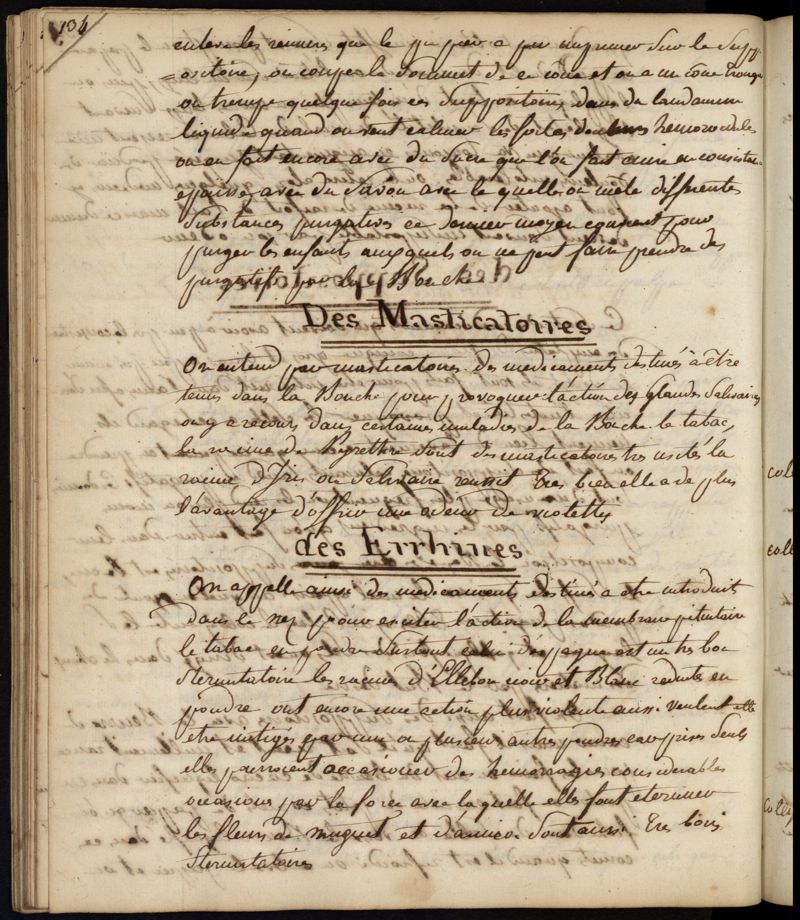 104
enleve les rainures que le papier a pu imprimer Sur le Supp-
=ositoire, on coupe le Sommet de ce cone et on a un cone tronqué
on trempe quelque fois ces Suppositoires dans du laudanum
liquide quand on veut calmer les fortes douleurs hemoroidales
on en fait encore avec du Sucre que l'on fait cuire en consistance
epaisse, avec du Savon avec le quelle on mêle differentes
Substances purgatives ce dernier moyen convient pour
purger les enfants auxquels on ne peut faire prendre des
purgatifs par la Bouche
Des Masticatoires
On entend par masticatoires des medicaments destinés à être
tenus dans la Bouche pour provoquer l'action des glandes Salivaires
on y a recours dans certaines maladies de la Bouche le tabac,
La racine de Pyrethre Sont des masticatoires tres usités la
racine d'Iris ou Salivaire reussit tres bien elle a de plus
l'avantage d'offrir une odeur de violettes
des Errhines
On appelle ainsi des medicaments destiné a etre introduit
dans le nez pour exciter l'action de la membrane pituitaire
le tabac en poudre Surtout celui d'espagne est un tres bon
Sternutatoire les racines d'Ellebore noir et Blanc reduites en
poudre ont encore une action plus violente aussi veulent elle
etre mitigés par une ou plusieurs autres poudres car prises Seules
elles pourroient occasioner des hemorragies considerables
occasioné par la force avec laquelle elles font eternuer
les fleurs de muguet et d'arnica Sont aussi tres bons
Sternutatoires